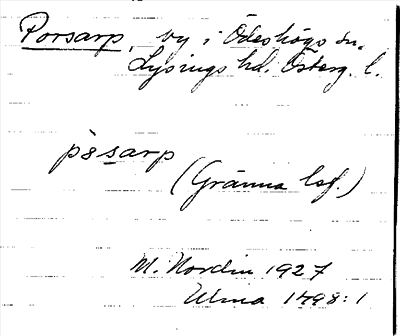 Porsarp, by i Ödeshögs sn.
Lysings hd. Österg. l.
pòsarp
(Gränna lsf.)
M. Nordin 1927
Ulma 1498:1